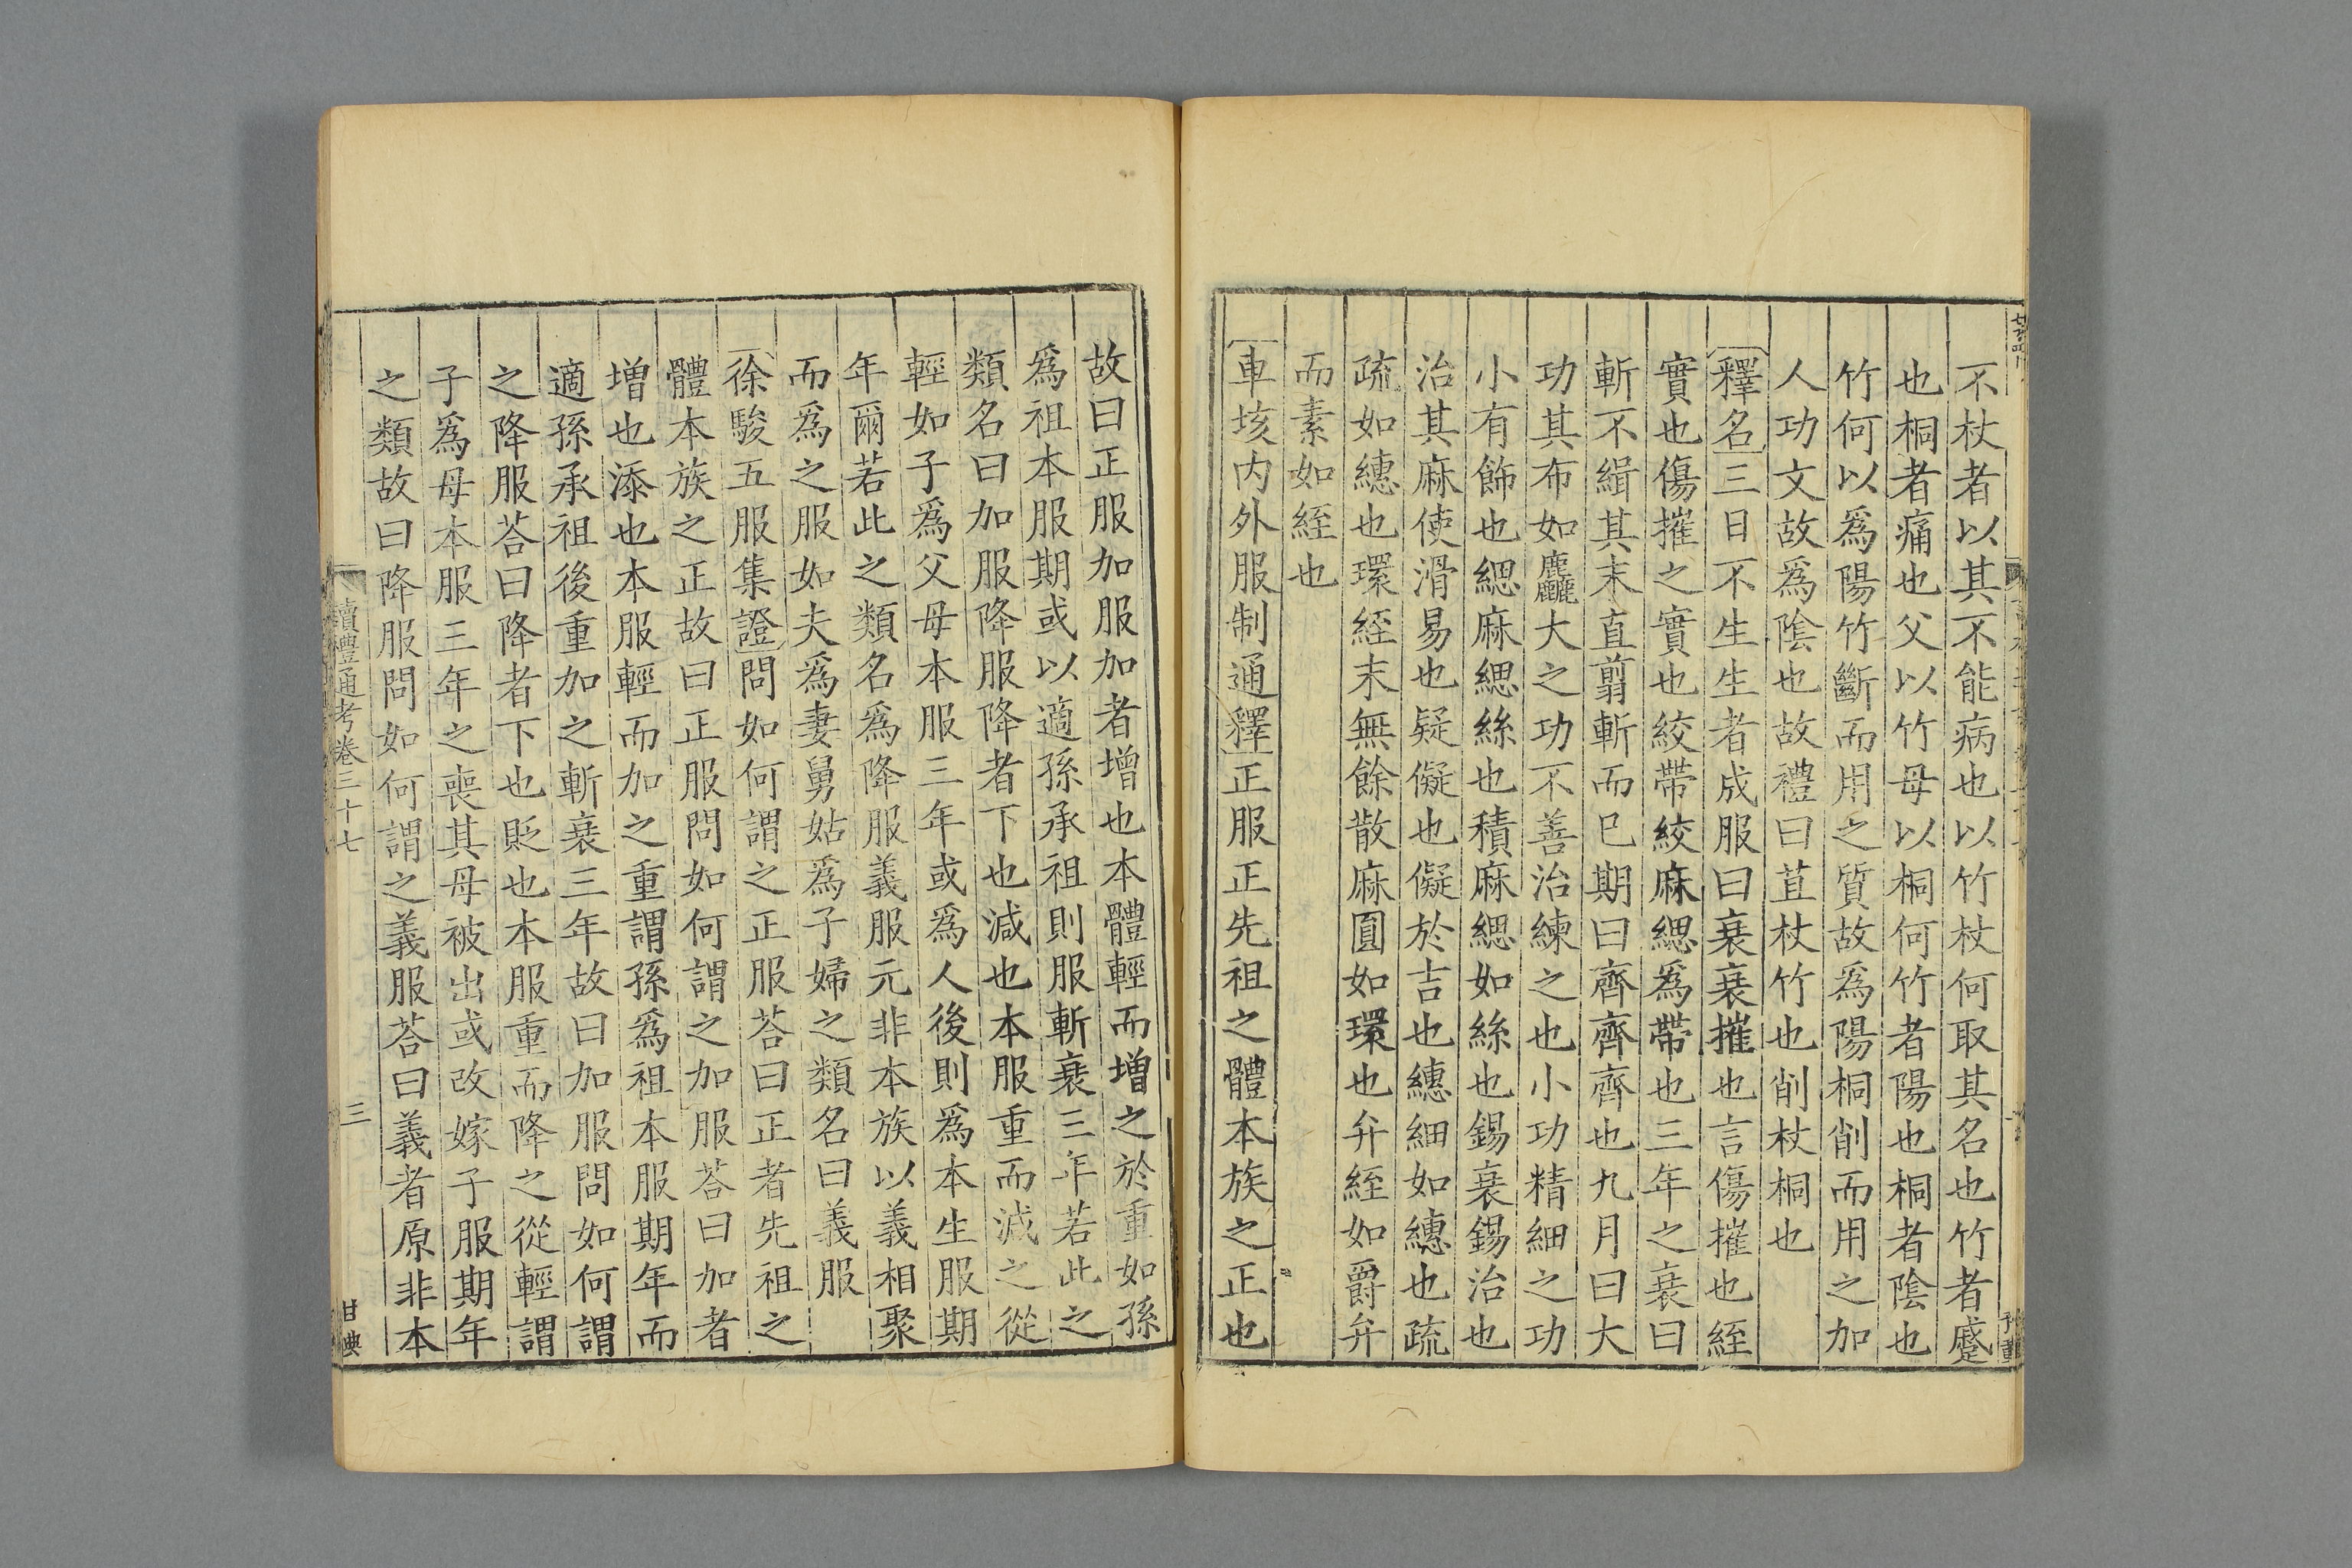 不杖者以其不能病也以竹杖何取其名也竹者蹙
也桐者痛也父以竹母以桐何竹者陽也桐者陰也
竹何以爲陽竹斷而用之質故爲陽桐削而用之加
人功文故爲陰也故禮曰苴杖竹也削杖桐也
釋名三日不生生者成服曰衰衰摧也言傷摧也絰
實也傷摧之實也絞帶絞麻緦爲帶也三年之衰曰
斬不緝其末直翦斬而已期曰齊齊齊也九月曰大
功其布如麤大之功不善治練之也小功精細之功
小有飾也緦麻緦絲也積麻緦如絲也錫衰錫治也
治其麻使滑易也疑儗也儗於吉也繐細如繐也疏
疏如繐也環絰末無餘散麻圓如環也弁絰如爵弁
而素如絰也
車垓内外服制通釋正服正先祖之體本族之正也
故曰正服加服加者增也本體輕而增之於重如孫
爲祖本服期或以適孫承祖則服斬衰三年若此之
類名曰加服降服降者下也減也本服重而減之從
輕如子爲父母本服三年或爲人後則爲本生服期
年爾若此之類名爲降服義服元非本族以義相聚
而爲之服如夫爲妻舅姑爲子婦之類名曰義服
徐駿五服集證問如何謂之正服荅曰正者先祖之
體本族之正故曰正服問如何謂之加服荅曰加者
增也添也本服輕而加之重謂孫爲祖本服期年而
適孫承祖後重加之斬衰三年故曰加服問如何謂
之降服荅曰降者下也貶也本服重而降之從輕謂
子爲母本服三年之喪其母被出或改嫁子服期年
之類故曰降服問如何謂之義服荅曰義者原非本
讀禮通考卷三十七
三
甘典